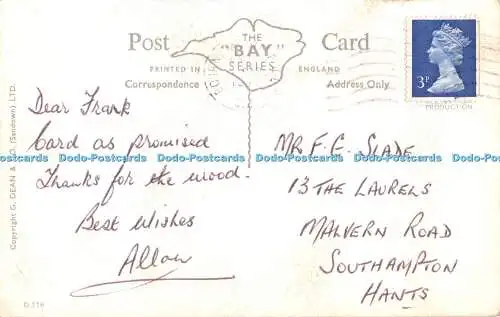 Post
THE
"BAY"
SERIES
Card
PRINTED IN
ENGLAND
Correspondence
Address Only
3P
PRODUCTION
Dear Frank
Card as promised
Thanks for the wood.
Best wishes
MR F.E. SLADE
13 THE LAURELS
MALVERN ROAD
SOUTHAMPTON
HANTS
Copyright G. DEAN & CO. (Sandown) LTD.
Dodo-Postcards Dodo-Postcards Dodo-Postcards Dodo-Postcards Dodo-Postcards
Dodo-Postcards Dodo-Postcards Dodo-Postcards Dodo-Postcards